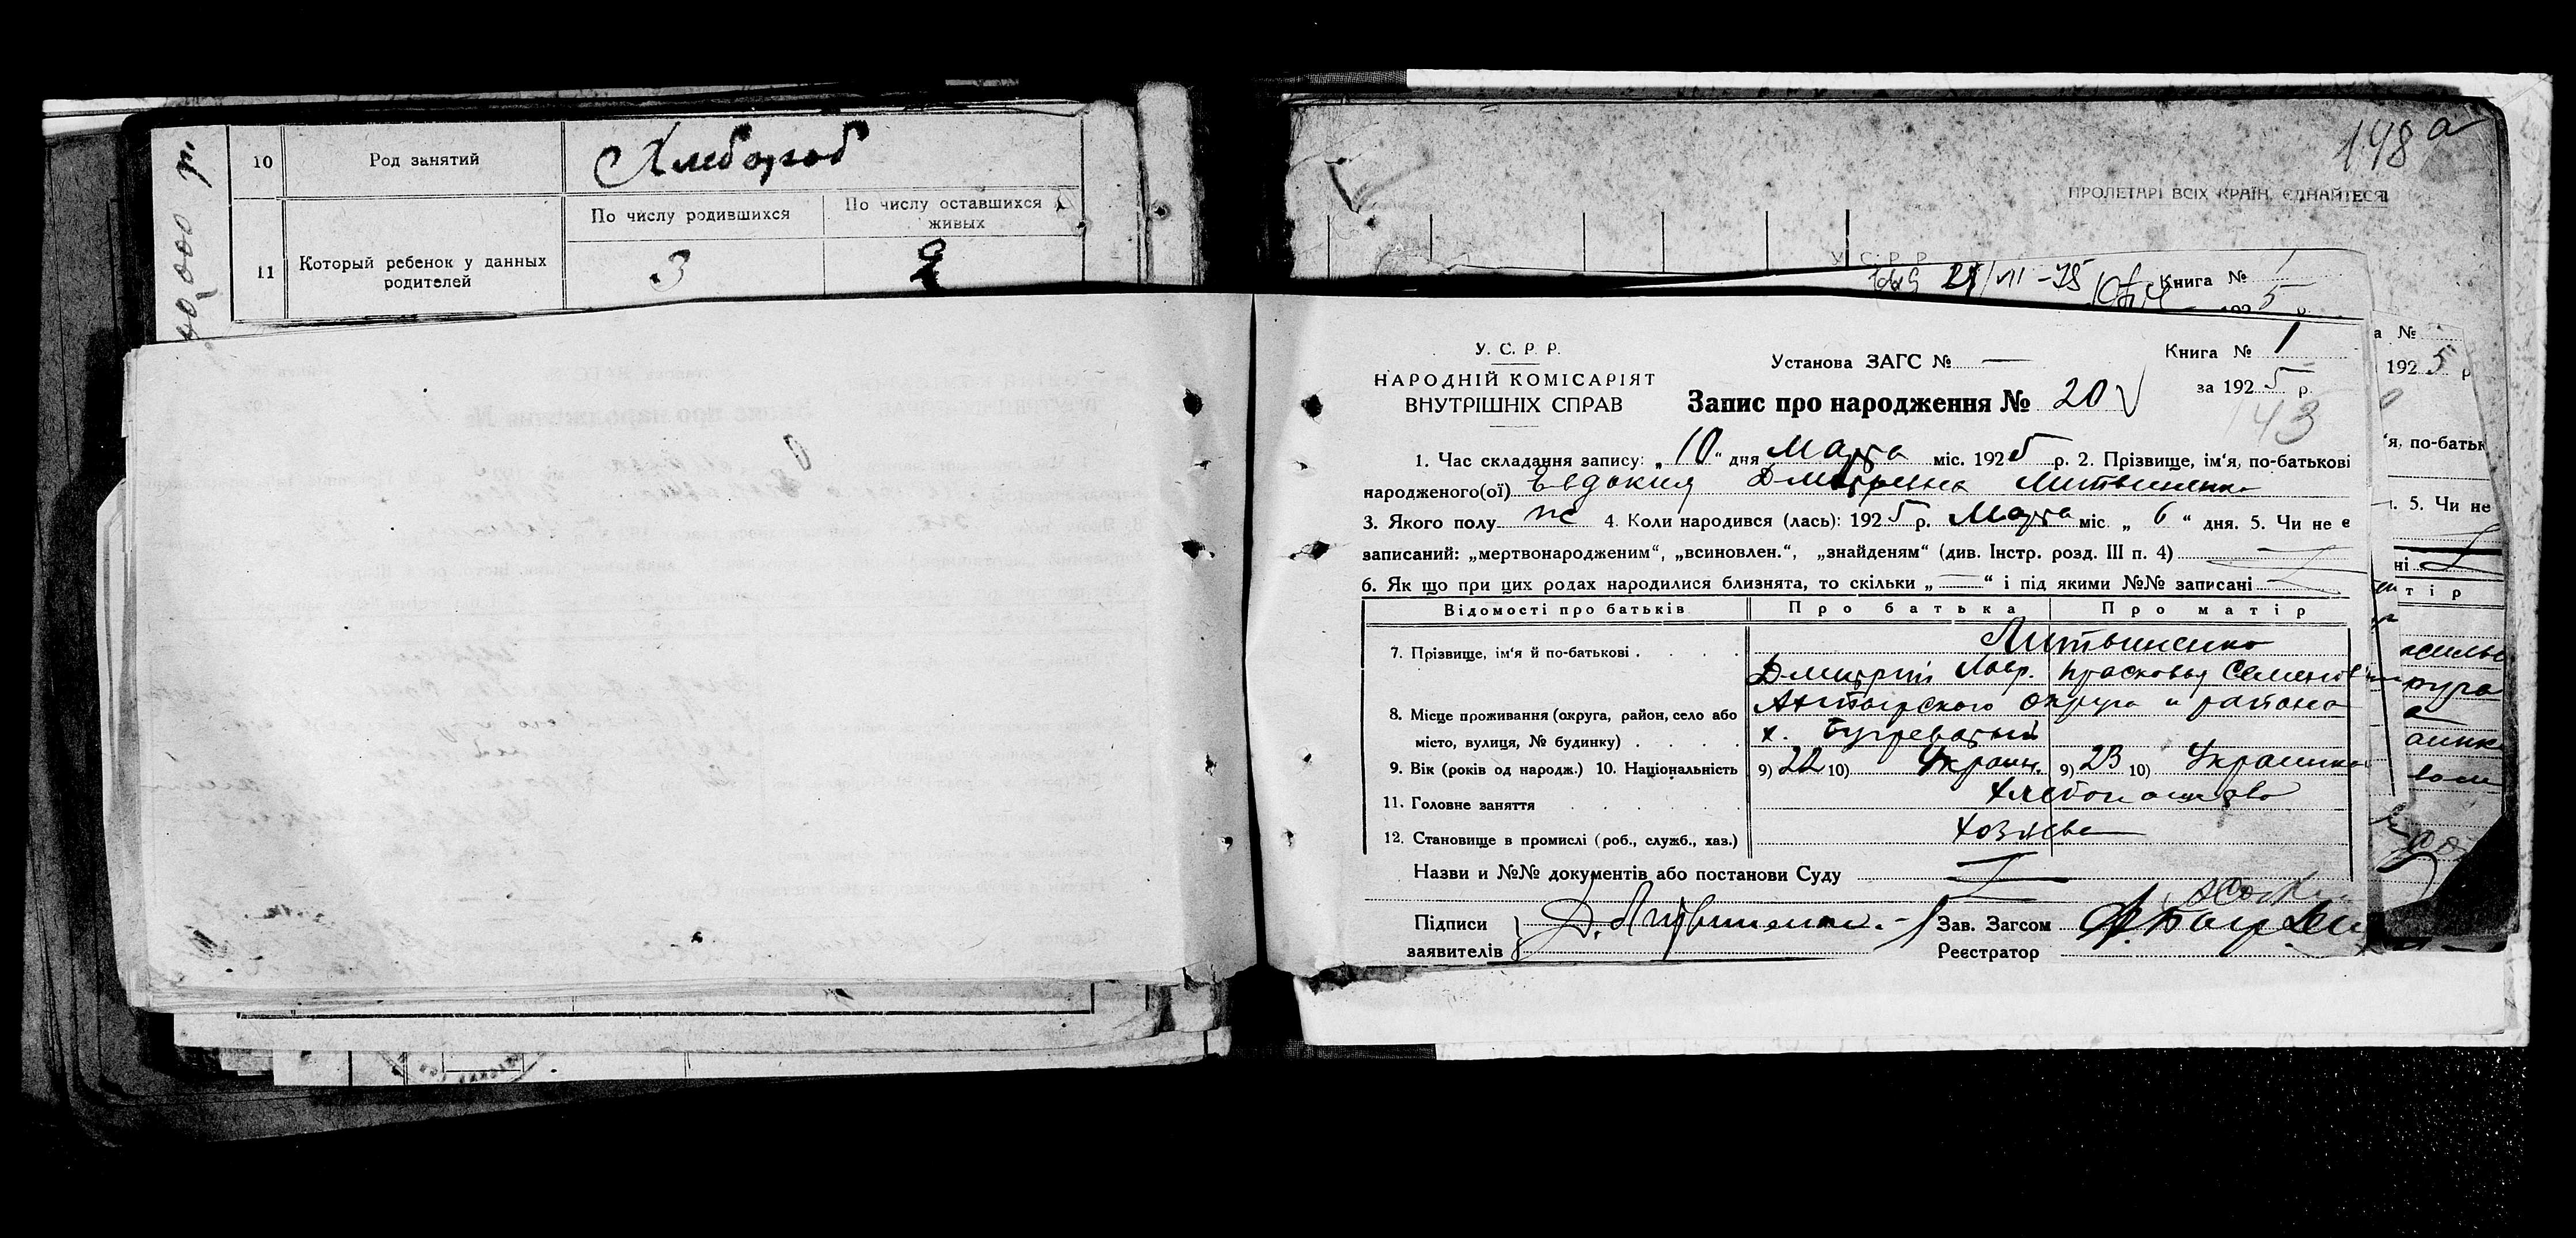 40,000 р.
10 Род занятий Хлебороб
По числу родившихся По числу оставшихся живых
11 Который ребенок у данных родителей 3 2
148 а
ПРОЛЕТАРІ ВСІХ КРАЇН, ЄДНАЙТЕСЯ
У С Р Р
Книга №
192 5 р.
У. С. Р. Р.
НАРОДНІЙ КОМІСАРІЯТ
ВНУТРІШНІХ СПРАВ
Установа ЗАГС № —
Книга № 1
за 192 5 р.
Запис про народження № 20
43
1. Час складання запису: „ 10 “ дня Марта міс. 192 5 р. 2. Прізвище, ім'я, по-батькові
народженого(ої) Евдокия Дмитриевна Литвиненко
3. Якого полу ж 4. Коли народився (лась): 192 5 р. Марта міс. „ 6 “ дня. 5. Чи не є
записаний: „мертвонародженим“, „всиновлен.“, „знайденям“ (див. Інстр. розд. III п. 4)
6. Як що при цих родах народилися близнята, то скільки „ — “ і під якими №№ записані
Відомості про батьків Про батька Про матір
7. Прізвище, ім'я й по-батькові . . . . Литвиненко
Дмитрий Лавр. Прасковья Семенов
8. Місце проживання (округа, район, село або
місто, вулиця, № будинку) . . . . округа и района
х. Бугреватый
9. Вік (років од народж.) 10. Національність 9) 22 10) Украин. 9) 23 10) Украинка
11. Головне заняття . . . . . хлебопашество
12. Становище в промислі (роб., служб., хаз.) хозяева
Назви и №№ документів або постанови Суду
Підписи
заявителів Д. Литвиненко
Зав. Загсом
Реєстратор
а №
192 5 р
'я, по-батьк
5. Чи не
ні
т і р